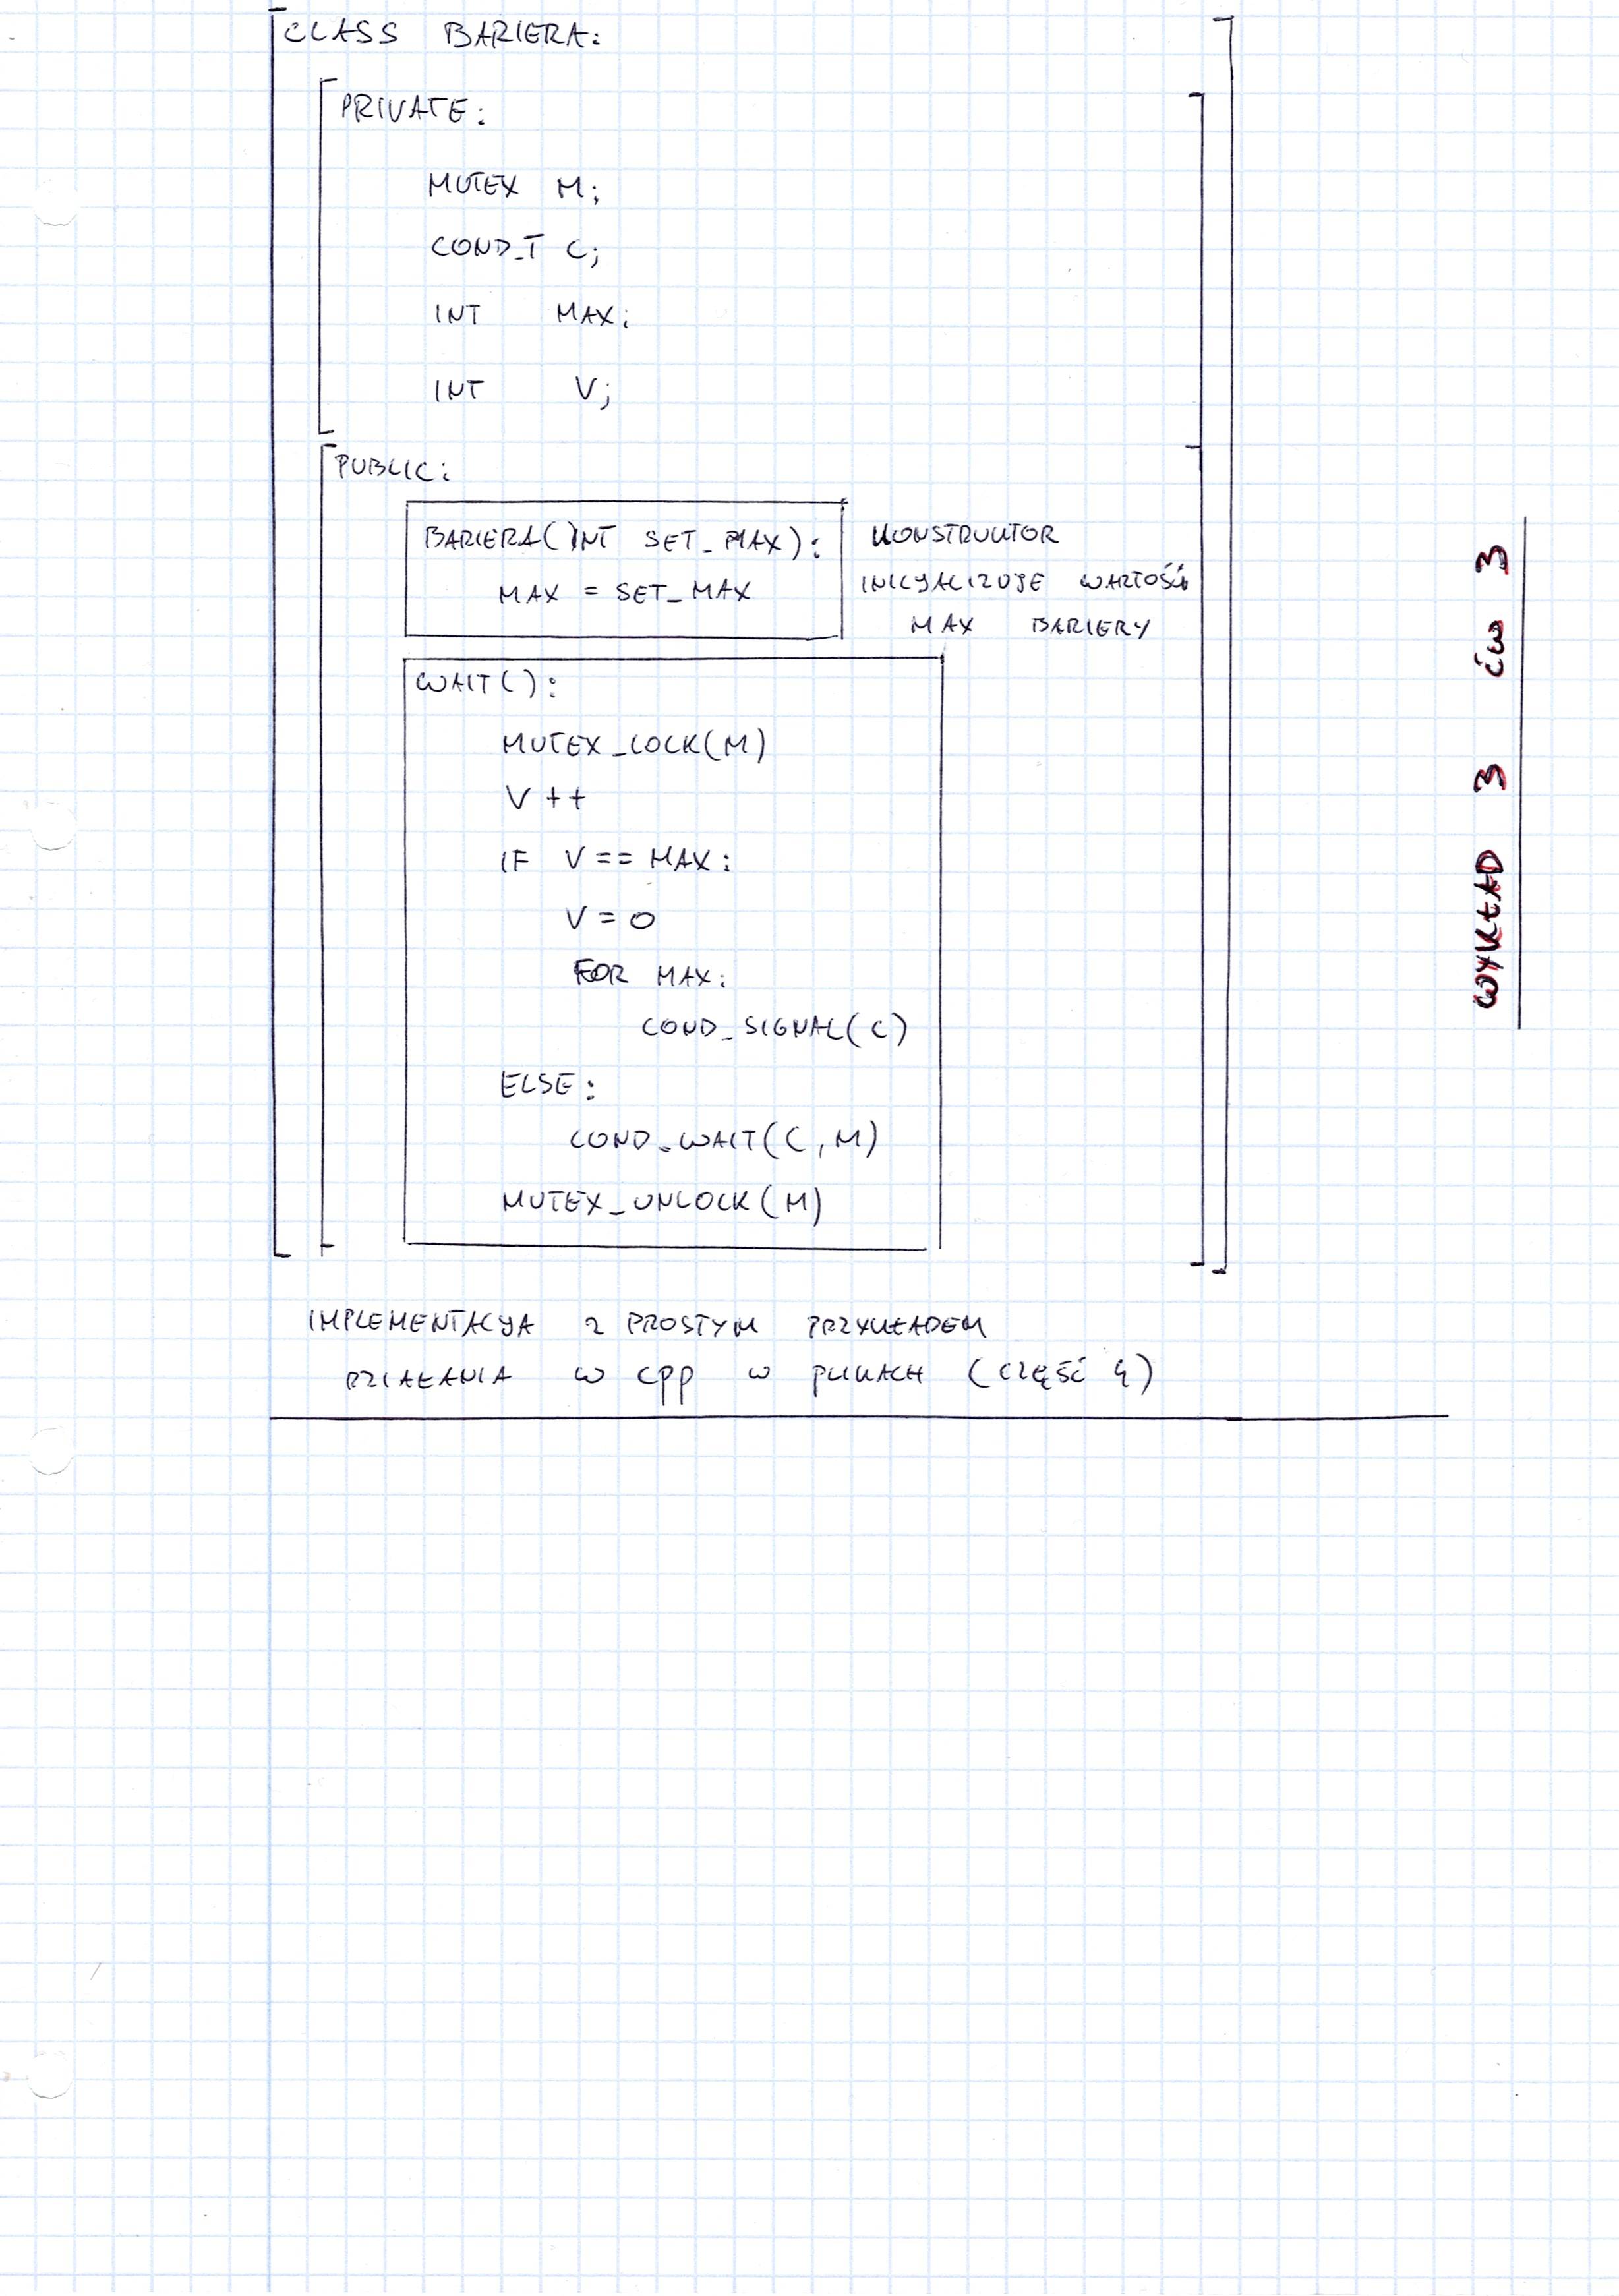 CLASS BARIERA:
PRIVATE:
MUTEX M;
COND_T C;
INT MAX;
INT V;
PUBLIC:
BARIERA(INT SET_MAX):
MAX = SET_MAX
KONSTRUKTOR
INICJALIZUJE WARTOŚĆ
MAX BARIERY
WAIT():
MUTEX_LOCK(M)
V++
IF V == MAX:
V = 0
FOR MAX:
COND_SIGNAL(C)
ELSE:
COND_WAIT(C,M)
MUTEX_UNLOCK(M)
IMPLEMENTACJA Z PROSTYM PRZYKŁADEM
DZIAŁANIA W CPP W PLIKACH (CZĘŚĆ 4)
WYKŁAD 3 ĆW 3